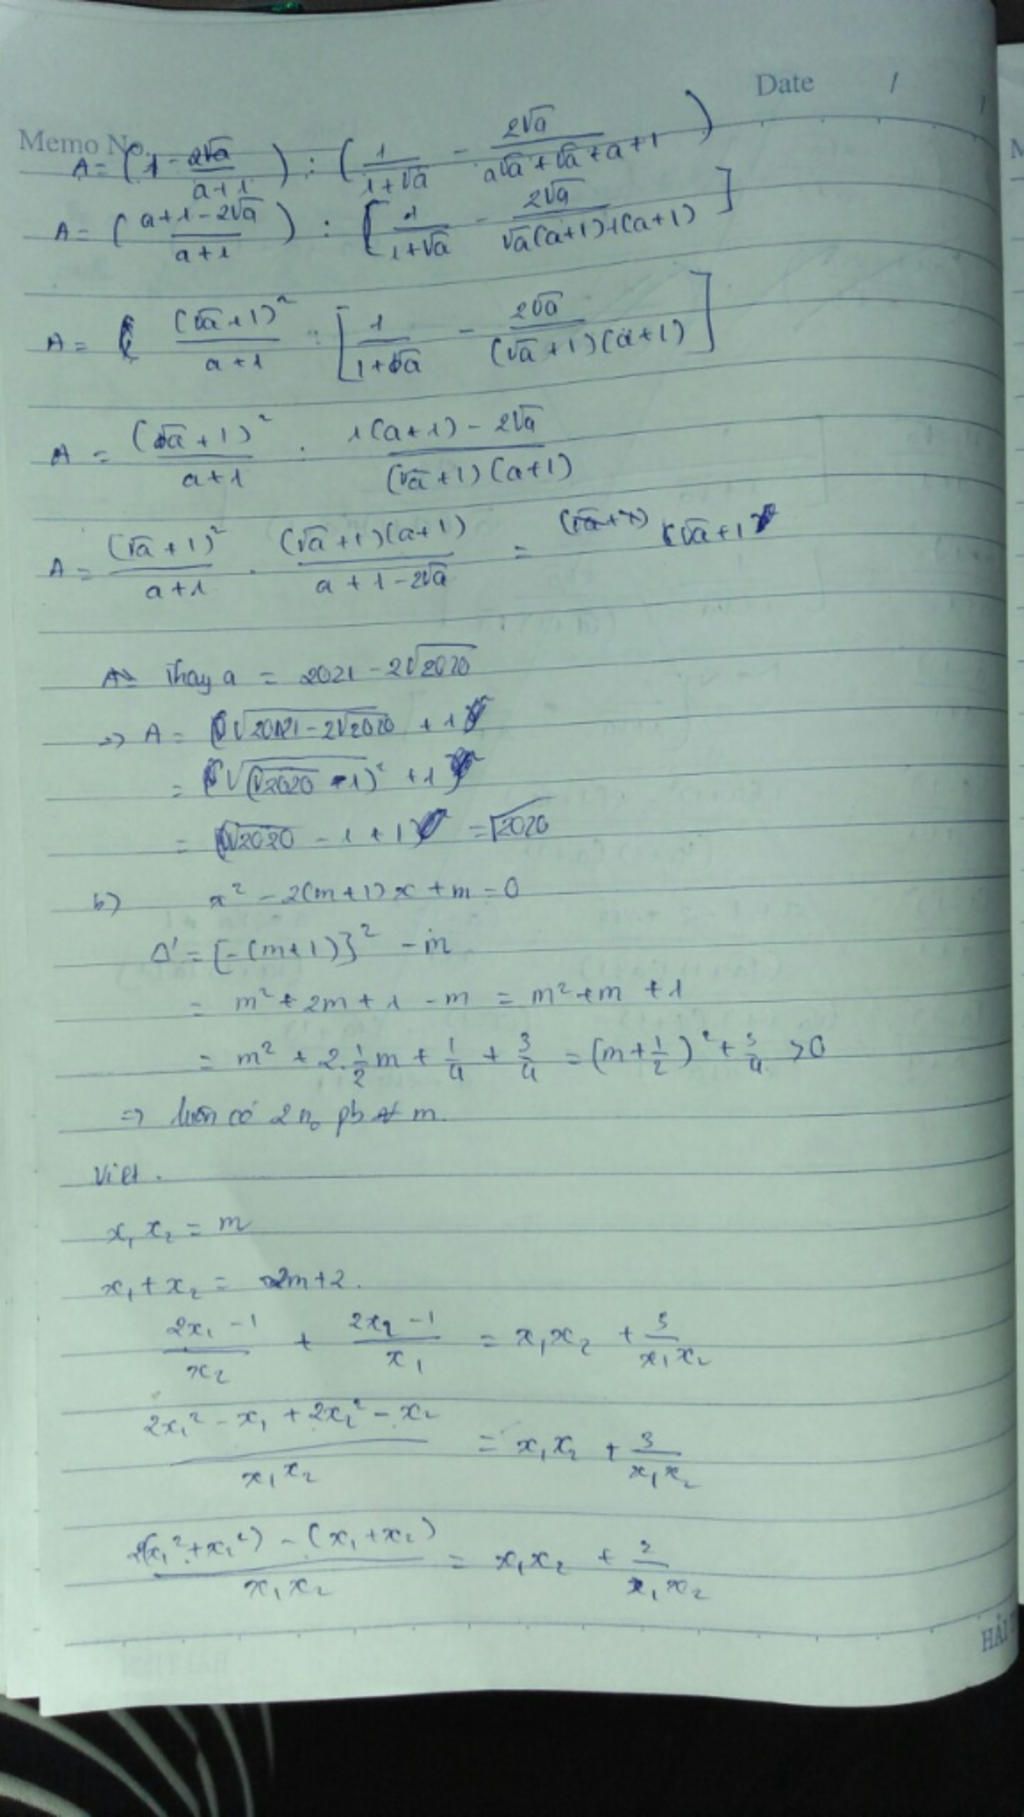 Memo No. Date / /
A = (1 - 2√a/(a+1)) : (1/(1+√a) - 2√a/(a√a+√a+a+1))
A = ((a+1-2√a)/(a+1)) : [1/(1+√a) - 2√a/(√a(a+1)+(a+1))]
A = (√a+1)²/(a+1) : [1/(1+√a) - 2√a/((√a+1)(a+1))]
A = (√a+1)²/(a+1) : (1(a+1)-2√a)/((√a+1)(a+1))
A = (√a+1)²/(a+1) . (√a+1)(a+1)/(a+1-2√a) = √a+1
Thay a = 2021 - 2√2020
=> A = √(2021-2√2020) + 1
= √(√2020 - 1)² + 1
= √2020 - 1 + 1 = √2020
b) x² - 2(m+1)x + m = 0
Δ' = [-(m+1)]² - m
= m² + 2m + 1 - m = m² + m + 1
= m² + 2.1/2 m + 1/4 + 3/4 = (m + 1/2)² + 3/4 > 0
=> luôn có 2 n₀ pb ∀ m.
Viet.
x₁x₂ = m
x₁ + x₂ = 2m+2.
(2x₁ - 1)/x₂ + (2x₂ - 1)/x₁ = x₁x₂ + 3/(x₁x₂)
(2x₁² - x₁ + 2x₂² - x₂)/(x₁x₂) = x₁x₂ + 3/(x₁x₂)
(2(x₁²+x₂²) - (x₁+x₂))/(x₁x₂) = x₁x₂ + 3/(x₁x₂)
HẢI